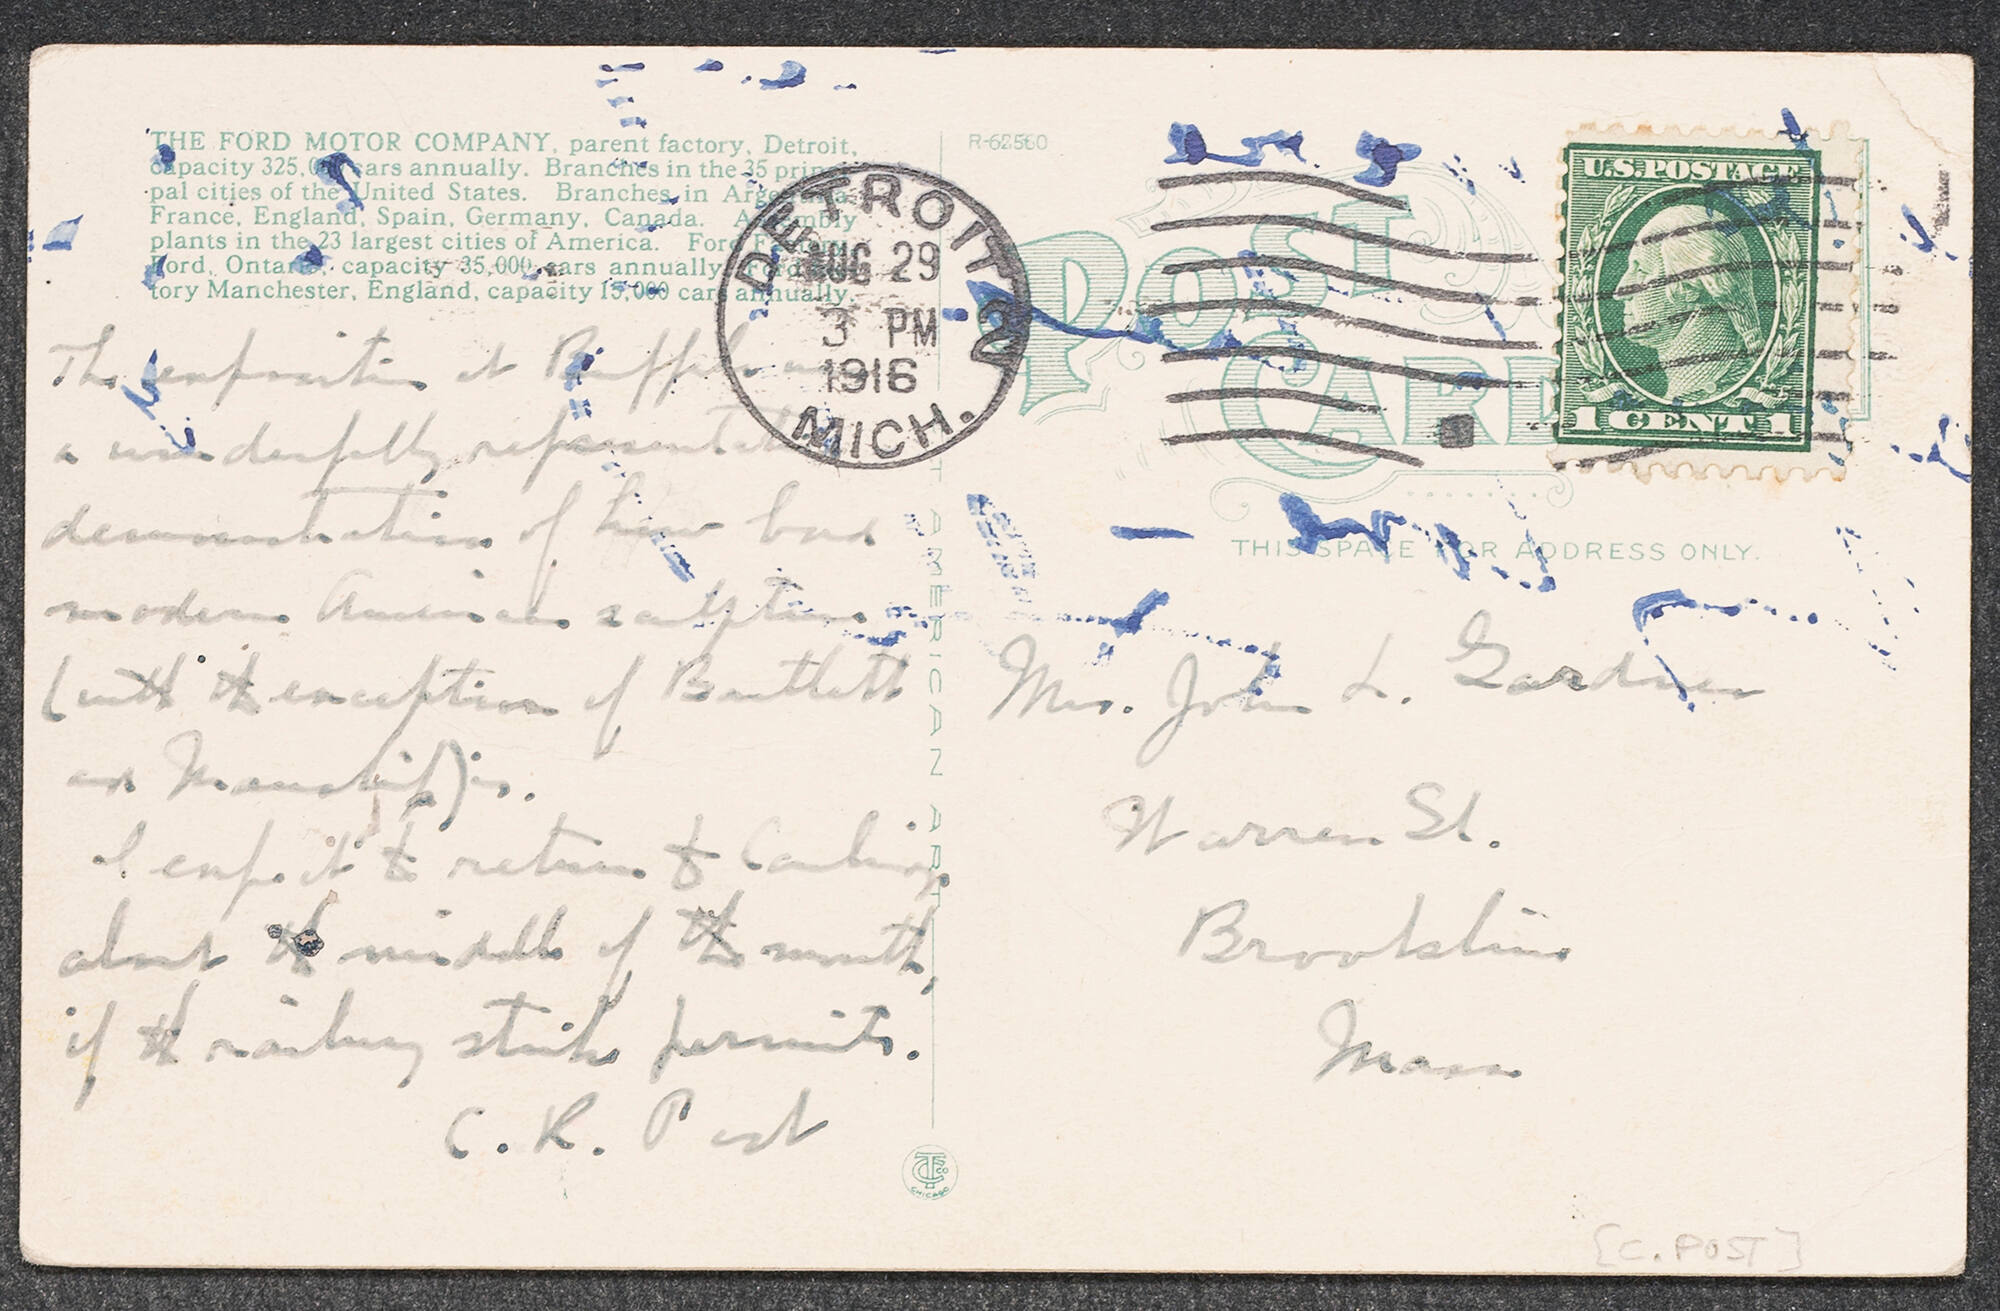 THE FORD MOTOR COMPANY, parent factory, Detroit,
capacity 325,000 cars annually. Branches in the 35 princi-
pal cities of the United States. Branches in Argentina,
France, England, Spain, Germany, Canada. Assembly
plants in the 23 largest cities of America. Ford Factory
Ford, Ontario, capacity 35,000 cars annually. Ford
tory Manchester, England, capacity 15,000 cars annually.
The exposition at Buffalo was
a wonderfully representative
demonstration of how bad
modern American sculpture
(with the exception of Bartlett
and Manship) is.
I expect to return to Cambridge
about the middle of the month,
if the railway strike permits.
C. R. Post
AMERICAN ART
C T Co
CHICAGO
R-62560
DETROIT 2
AUG 29
3 PM
1916
MICH.
POST CARD
U.S. POSTAGE
1 CENT 1
THIS SPACE FOR ADDRESS ONLY.
Mrs. John L. Gardner
Warren St.
Brookline
Mass
[C. POST]